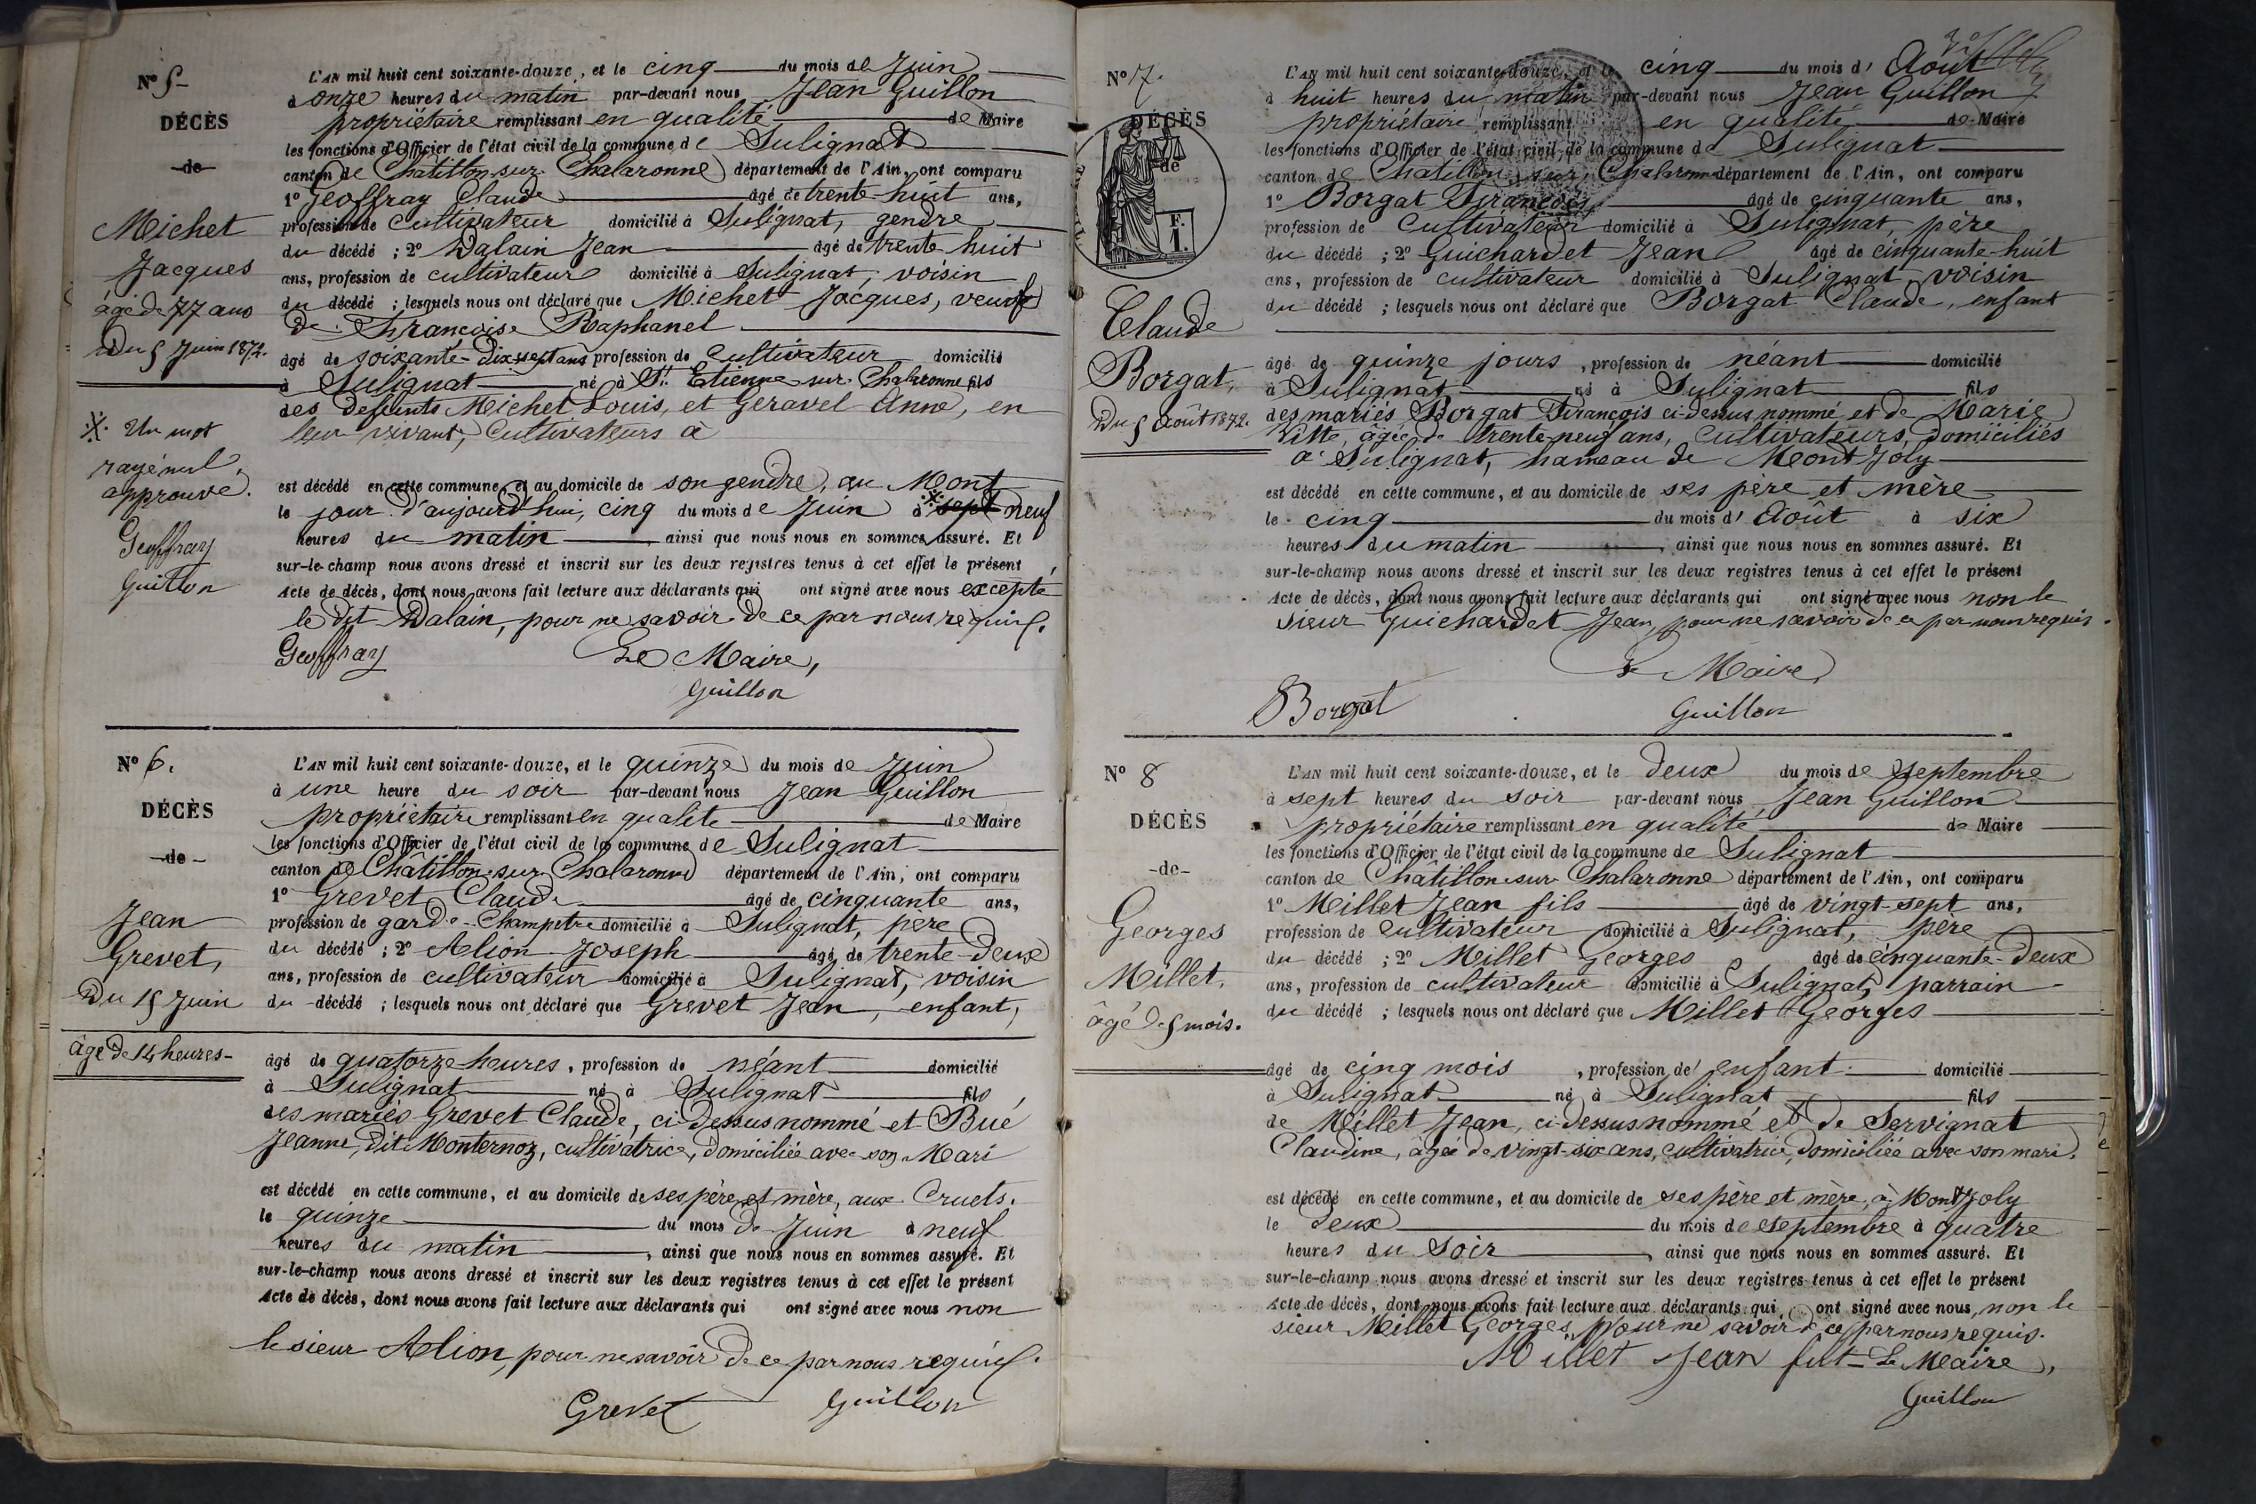 N° 5
DÉCÈS
de
Michet
Jacques
âgé de 77 ans
Du 5 Juin 1872.
※ Un mot
rayé nul,
approuvé.
Geoffray
Guillon
L'AN mil huit cent soixante-douze, et le cinq du mois de Juin
à onze heures du matin par-devant nous Jean Guillon
propriétaire remplissant en qualité de Maire
les fonctions d'Officier de l'état civil de la commune de Sulignat
canton de Châtillon-sur-Chalaronne département de l'Ain, ont comparu
1° Geoffray Claude âgé de trente-huit ans,
profession de cultivateur domicilié à Sulignat, gendre
du décédé ; 2° Dalain Jean âgé de trente-huit
ans, profession de cultivateur domicilié à Sulignat, voisin
du décédé ; lesquels nous ont déclaré que Michet Jacques, veuf
de Françoise Raphanel
âgé de soixante-dix-sept ans profession de cultivateur domicilié
à Sulignat né à St. Etienne-sur-Chalaronne fils
des défunts Michet Louis, et Geravel Anne, en
leur vivant, cultivateurs à
est décédé en cette commune, et au domicile de son gendre, au Mont
le jour d'aujourd'hui, cinq du mois de Juin à ※ sept neuf
heures du matin, ainsi que nous nous en sommes assuré. Et
sur-le-champ nous avons dressé et inscrit sur les deux registres tenus à cet effet le présent
Acte de décès, dont nous avons fait lecture aux déclarants qui ont signé avec nous excepté
le dit Dalain, pour ne savoir de ce par nous requis.
Geoffray Le Maire,
Guillon
N° 6.
DÉCÈS
de
Jean
Grevet,
Du 15 Juin
âgé de 14 heures
L'AN mil huit cent soixante-douze, et le quinze du mois de Juin
à une heure du soir par-devant nous Jean Guillon
propriétaire remplissant en qualité de Maire
les fonctions d'Officier de l'état civil de la commune de Sulignat
canton de Châtillon-sur-Chalaronne département de l'Ain, ont comparu
1° Grevet Claude âgé de cinquante ans,
profession de garde-Champetre domicilié à Sulignat, père
du décédé ; 2° Alion Joseph âgé de trente-deux
ans, profession de cultivateur domicilié à Sulignat, voisin
du décédé ; lesquels nous ont déclaré que Grevet Jean, enfant,
âgé de quatorze heures, profession de néant domicilié
à Sulignat né à Sulignat fils
des mariés Grevet Claude, ci-dessus nommé et Bué
Jeanne, dit Monternoz, cultivatrice, domiciliée avec son Mari
est décédé en cette commune, et au domicile de ses père et mère, aux Cruets.
le quinze du mois de Juin à neuf
heures du matin, ainsi que nous nous en sommes assuré. Et
sur-le-champ nous avons dressé et inscrit sur les deux registres tenus à cet effet le présent
Acte de décès, dont nous avons fait lecture aux déclarants qui ont signé avec nous non
le sieur Alion, pour ne savoir de ce par nous requis.
Grevet Guillon
N° 7.
DÉCÈS
de
F.
1.
Claude
Borgat,
Du 5 Août 1872.
L'AN mil huit cent soixante-douze, et le cinq du mois d' Août
à huit heures du matin par-devant nous Jean Guillon
propriétaire remplissant en qualité de Maire
les fonctions d'Officier de l'état civil de la commune de Sulignat
canton de Châtillon-sur-Chalaronne département de l'Ain, ont comparu
1° Borgat François âgé de cinquante ans,
profession de cultivateur domicilié à Sulignat, père
du décédé ; 2° Guichardet Jean âgé de cinquante-huit
ans, profession de cultivateur domicilié à Sulignat voisin
du décédé ; lesquels nous ont déclaré que Borgat Claude, enfant
âgé de quinze jours, profession de néant domicilié
à Sulignat né à Sulignat fils
des mariés Borgat François ci-dessus nommé et de Marie
Vitte, âgée de trente-neuf ans, cultivateurs, domiciliés
à Sulignat, hameau de Mont-Joly
est décédé en cette commune, et au domicile de ses père et mère
le cinq du mois d' Août à six
heures du matin, ainsi que nous nous en sommes assuré. Et
sur-le-champ nous avons dressé et inscrit sur les deux registres tenus à cet effet le présent
Acte de décès, dont nous avons fait lecture aux déclarants qui ont signé avec nous non le
sieur Guichardet Jean, pour ne savoir de ce par nous requis.
Le Maire,
Borgat Guillon
N° 8
DÉCÈS
de
Georges
Millet,
âgé de 5 mois.
L'AN mil huit cent soixante-douze, et le deux du mois de septembre
à sept heures du soir par-devant nous Jean Guillon
propriétaire remplissant en qualité de Maire
les fonctions d'Officier de l'état civil de la commune de Sulignat
canton de Châtillon-sur-Chalaronne département de l'Ain, ont comparu
1° Millet Jean fils âgé de vingt-sept ans,
profession de cultivateur domicilié à Sulignat, père
du décédé ; 2° Millet Georges âgé de cinquante-deux
ans, profession de cultivateur domicilié à Sulignat, parrain
du décédé ; lesquels nous ont déclaré que Millet Georges
âgé de cinq mois, profession de enfant domicilié
à Sulignat né à Sulignat fils
de Millet Jean, ci-dessus nommé et de Servignat
Claudine, âgée de vingt-six ans, cultivatrice, domiciliée avec son mari.
est décédé en cette commune, et au domicile de ses père et mère, à Mont Joly
le deux du mois de septembre à quatre
heures du soir, ainsi que nous nous en sommes assuré. Et
sur-le-champ nous avons dressé et inscrit sur les deux registres tenus à cet effet le présent
Acte de décès, dont nous avons fait lecture aux déclarants qui ont signé avec nous, non le
sieur Millet Georges, pour ne savoir de ce par nous requis.
Millet Jean Le Maire,
Guillon